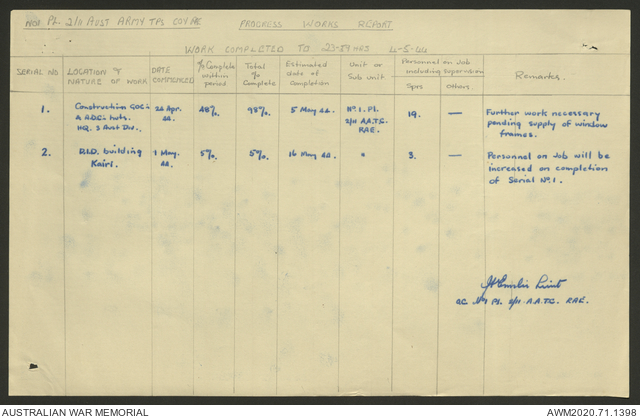 No1 PL. 2/11 AUST ARMY TPS COY AE
PROGRESS WORKS REPORT
WORK COMPLETED TO 23.59 HRS 4-5-44
SERIAL NO. LOCATION & NATURE OF WORK DATE COMMENCED % Complete within period Total % Complete Estimated date of Completion Unit or Sub unit Personnel on Job including Supervision Sprs Others. Remarks.
1. Construction GOC's & A.D.C's huts. HQ. 3 Aust Div. 26 Apr. 44. 48%. 98%. 5 May 44. No.1. Pl. 2/11 A.A.T.C. RAE. 19. — Further work necessary pending supply of window frames.
2. D.I.D. building Kairi. 1 May. 44. 5%. 5%. 16 May 44. " 3. — Personnel on Job will be increased on completion of Serial No.1.
Lieut
OC No1 Pl. 2/11 A.A.T.C. RAE.
AUSTRALIAN WAR MEMORIAL
AWM2020.71.1398